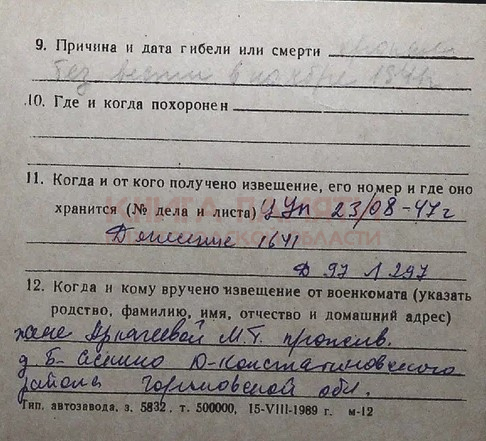 9. Причина и дата гибели или смерти пропал
без вести в ноябре 1941г
10. Где и когда похоронен
11. Когда и от кого получено извещение, его номер и где оно
хранится (№ дела и листа) ЦУп 23/08-47г
КНИГА ПАМЯТИ
ОБЛАСТИ
Донесение 1641
Д 97 Л 297
12. Когда и кому вручено извещение от военкомата (указать
родство, фамилию, имя, отчество и домашний адрес)
жене М.Т. прожив.
д Б- Ю-Константиновского
района Горьковской обл.
Тип. автозавода, з. 5832, т. 500000, 15-VIII-1989 г. м-12